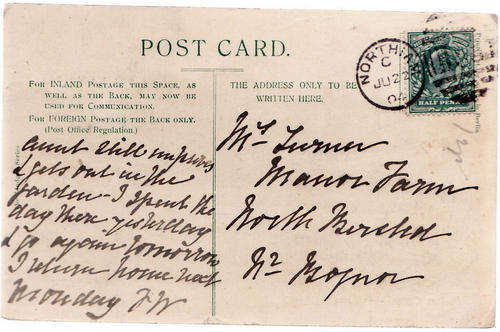 POST CARD.
FOR INLAND POSTAGE THIS SPACE, AS
WELL AS THE BACK, MAY NOW BE
USED FOR COMMUNICATION.
FOR FOREIGN POSTAGE THE BACK ONLY.
(Post Office Regulation.)
THE ADDRESS ONLY TO BE
WRITTEN HERE.
NORTHI
C
JU 22
04
HALF PENNY
Aunt still improves
& gets out in the
garden - I spent the
day there yesterday
& go again tomorrow
I return home next
Monday FW
Mrs Turner
Manor Farm
North Bersted
Nr Bognor